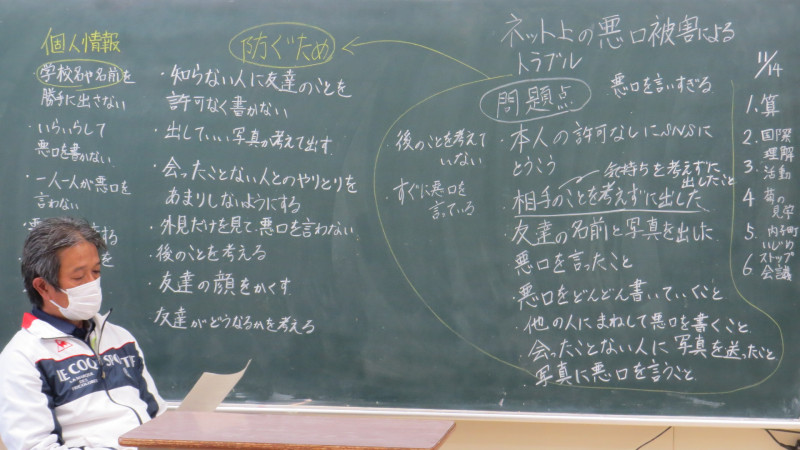 ネット上の悪口被害による
トラブル
問題点
悪口を言いすぎる
・本人の許可なしにSNSに
とうこう
気持ちを考えずに
出したこと
・相手のことを考えずに出した
・友達の名前と写真を出した
悪口を言ったこと
・悪口をどんどん書いていくこと
他の人にまねして悪口を書くこと
・会ったことない人に写真を送ったこと
・写真に悪口を言うこと
・後のことを考えて
いない
・すぐに悪口を
言っている
防ぐため
・知らない人に友達のことを
許可なく書かない
・出していい写真が考えて出す
・会ったことない人とのやりとりを
あまりしないようにする
・外見だけを見て悪口を言わない
・後のことを考える
・友達の顔をかくす
友達がどうなるかを考える
個人情報
学校名や名前を
勝手に出さない
・いらいらして
悪口を書かない
・一人一人が悪口を
言わない
する
を
11/14
1. 算
2. 国際
理解
3. 活動
4
見学
5. 内子町
いじめ
ストップ
6 会議
LE COQ SPORTIF